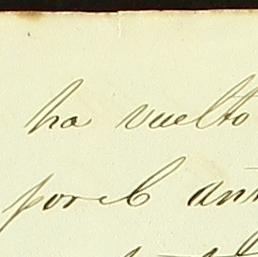 ha vuelto
por el ant